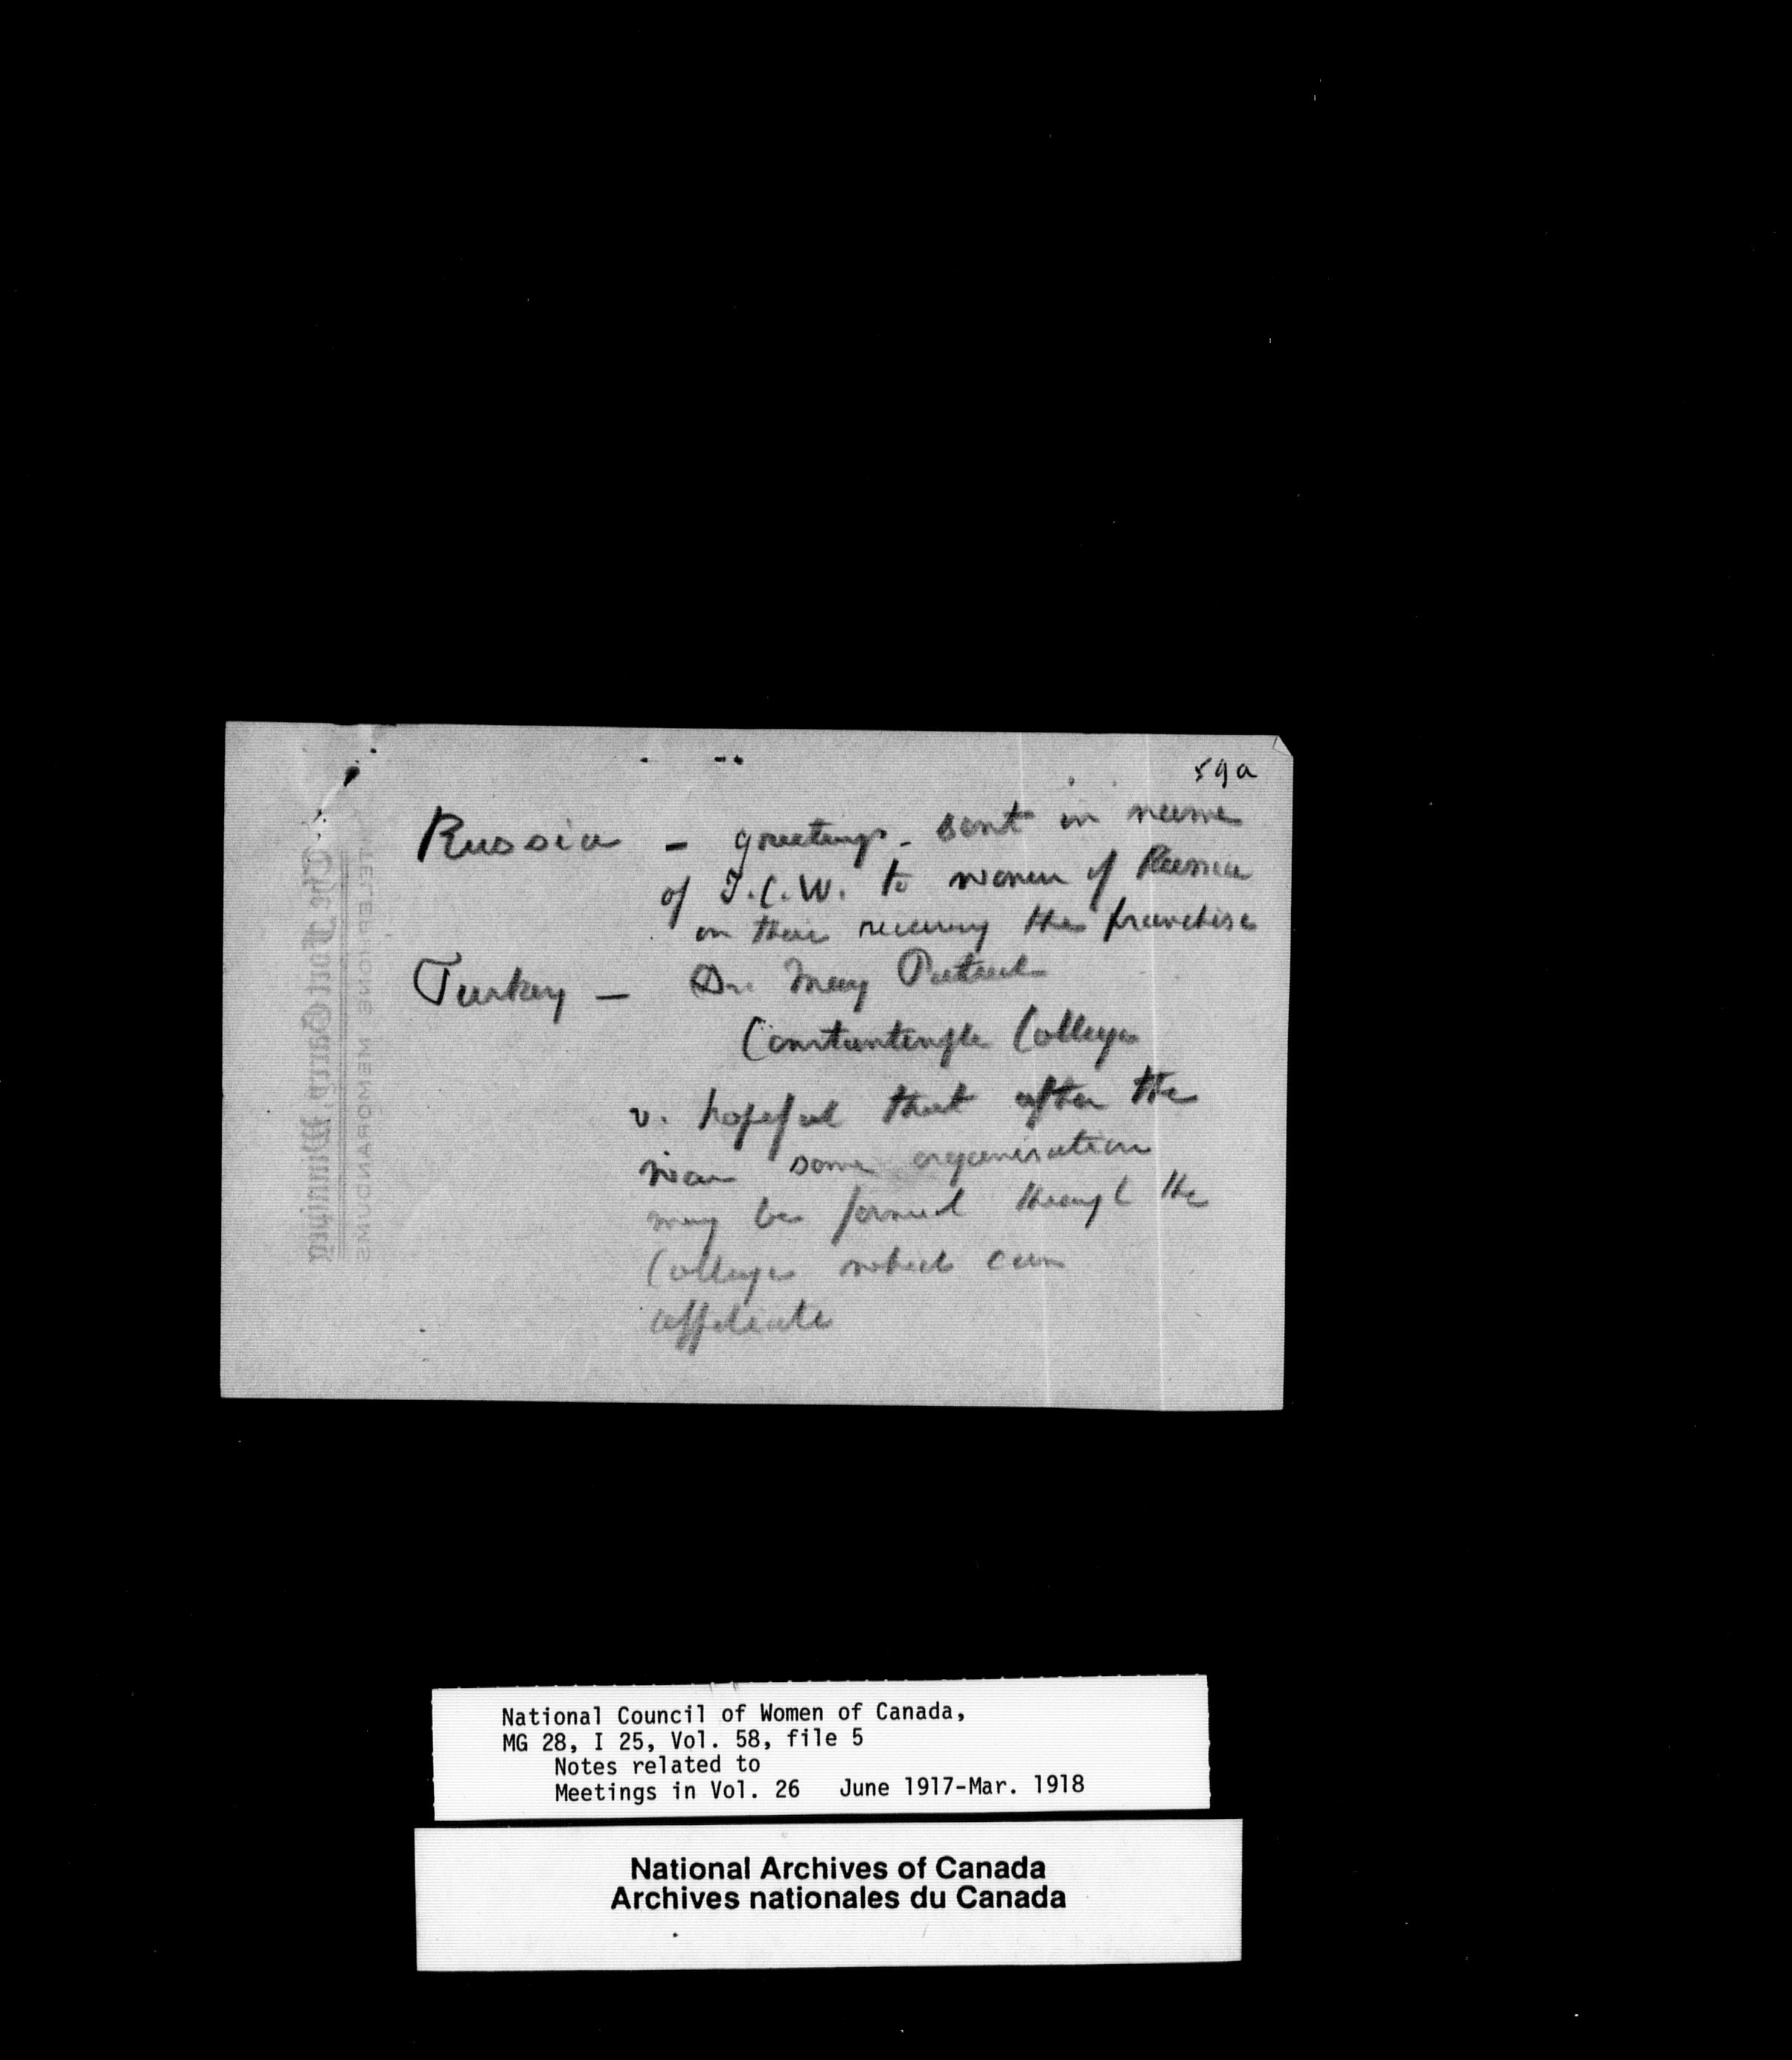 59a
Russia - greetings - sent in name
of I.C.W. to women of Russia
on their receiving the franchise
Turkey - Dr. Mary Patrick
Constantinople College
v. hopeful that after the
war some organisation
may be formed through the
College which can
affiliate
The Fort Garry, Winnipeg
TELEPHONE MEMORANDUMS
National Council of Women of Canada,
MG 28, I 25, Vol. 58, file 5
Notes related to
Meetings in Vol. 26 June 1917-Mar. 1918
National Archives of Canada
Archives nationales du Canada